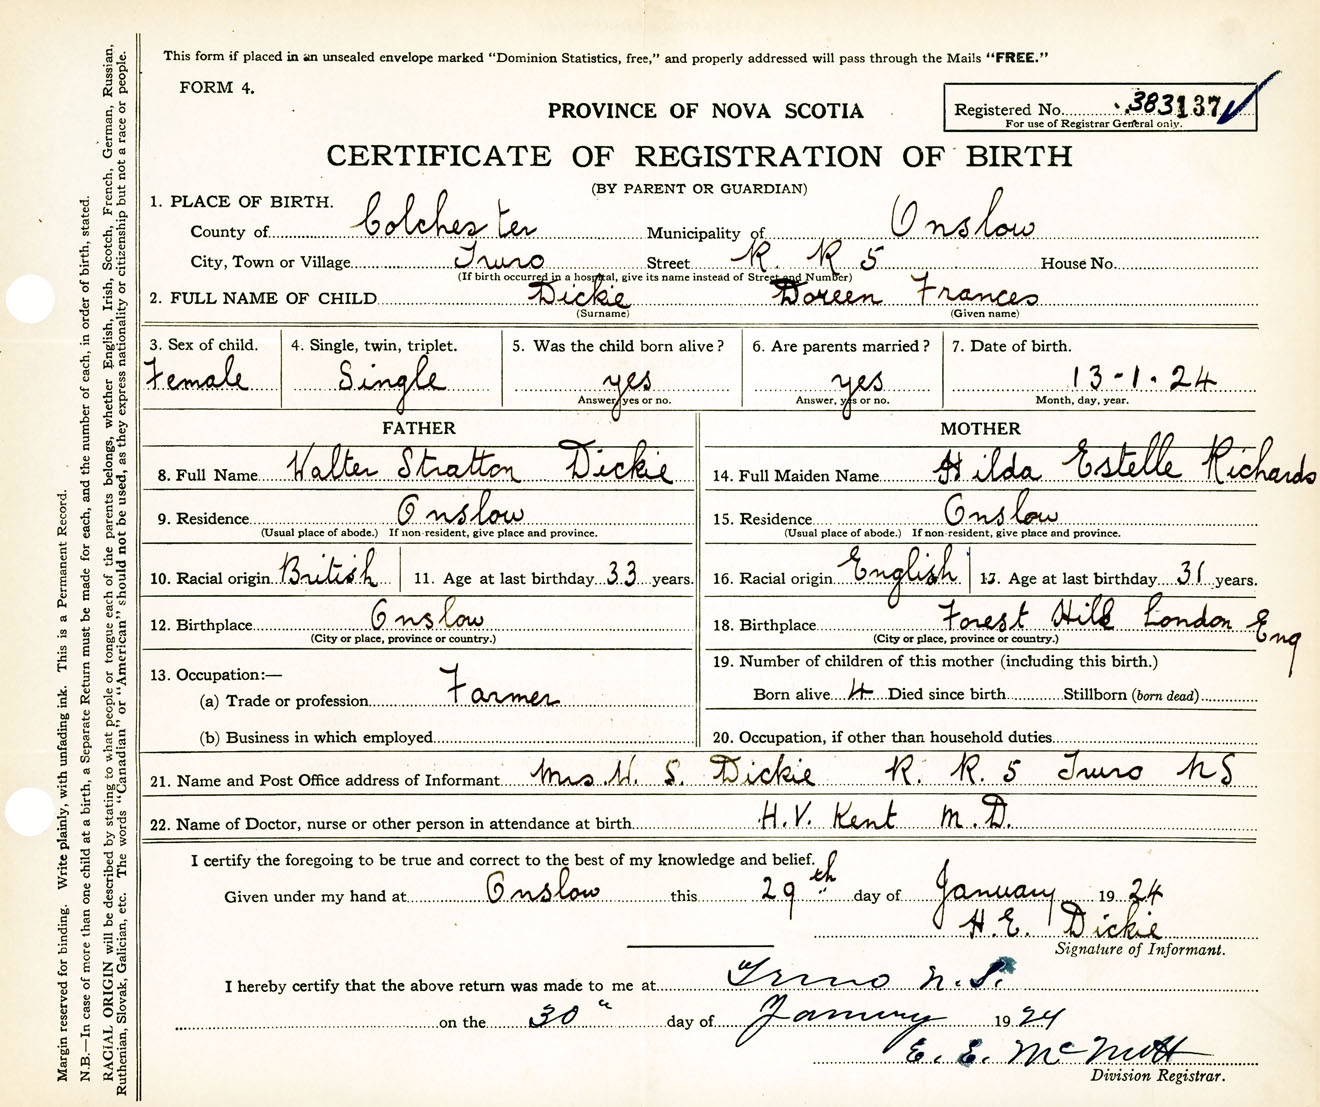 This form if placed in an unsealed envelope marked "Dominion Statistics, free," and properly addressed will pass through the Mails "FREE."
FORM 4.
PROVINCE OF NOVA SCOTIA
Registered No. 383137
For use of Registrar General only.
CERTIFICATE OF REGISTRATION OF BIRTH
(BY PARENT OR GUARDIAN)
1. PLACE OF BIRTH.
County of Colchester Municipality of Onslow
City, Town or Village Truro Street R. R 5 House No.
(If birth occurred in a hospital, give its name instead of Street and Number)
2. FULL NAME OF CHILD Dickie Doreen Frances
(Surname) (Given name)
3. Sex of child. 4. Single, twin, triplet. 5. Was the child born alive? 6. Are parents married? 7. Date of birth.
Female Single yes yes 13-1-24
Answer, yes or no. Answer, yes or no. Month, day, year.
FATHER MOTHER
8. Full Name Walter Stratton Dickie 14. Full Maiden Name Hilda Estelle Richards
9. Residence Onslow 15. Residence Onslow
(Usual place of abode.) If non-resident, give place and province. (Usual place of abode.) If non-resident, give place and province.
10. Racial origin British 11. Age at last birthday 33 years. 16. Racial origin English 17. Age at last birthday 31 years.
12. Birthplace Onslow 18. Birthplace Forest Hill London Eng
(City or place, province or country.) (City or place, province or country.)
13. Occupation:— 19. Number of children of this mother (including this birth.)
(a) Trade or profession Farmer Born alive 4 Died since birth Stillborn (born dead)
(b) Business in which employed 20. Occupation, if other than household duties
21. Name and Post Office address of Informant Mrs. W. S. Dickie R. R. 5 Truro NS
22. Name of Doctor, nurse or other person in attendance at birth H. V. Kent M. D.
I certify the foregoing to be true and correct to the best of my knowledge and belief.
Given under my hand at Onslow this 29th day of January 1924
H. E. Dickie
Signature of Informant.
I hereby certify that the above return was made to me at Truro N. S.
on the 30" day of January 1924
E. E. McNutt
Division Registrar.
Margin reserved for binding. Write plainly, with unfading ink. This is a Permanent Record.
N.B.—In case of more than one child at a birth, a Separate Return must be made for each, and the number of each, in order of birth, stated.
RACIAL ORIGIN will be described by stating to what people or tongue each of the parents belongs, whether English, Irish, Scotch, French, German, Russian,
Ruthenian, Slovak, Galician, etc. The words "Canadian" or "American" should not be used, as they express nationality or citizenship but not a race or people.